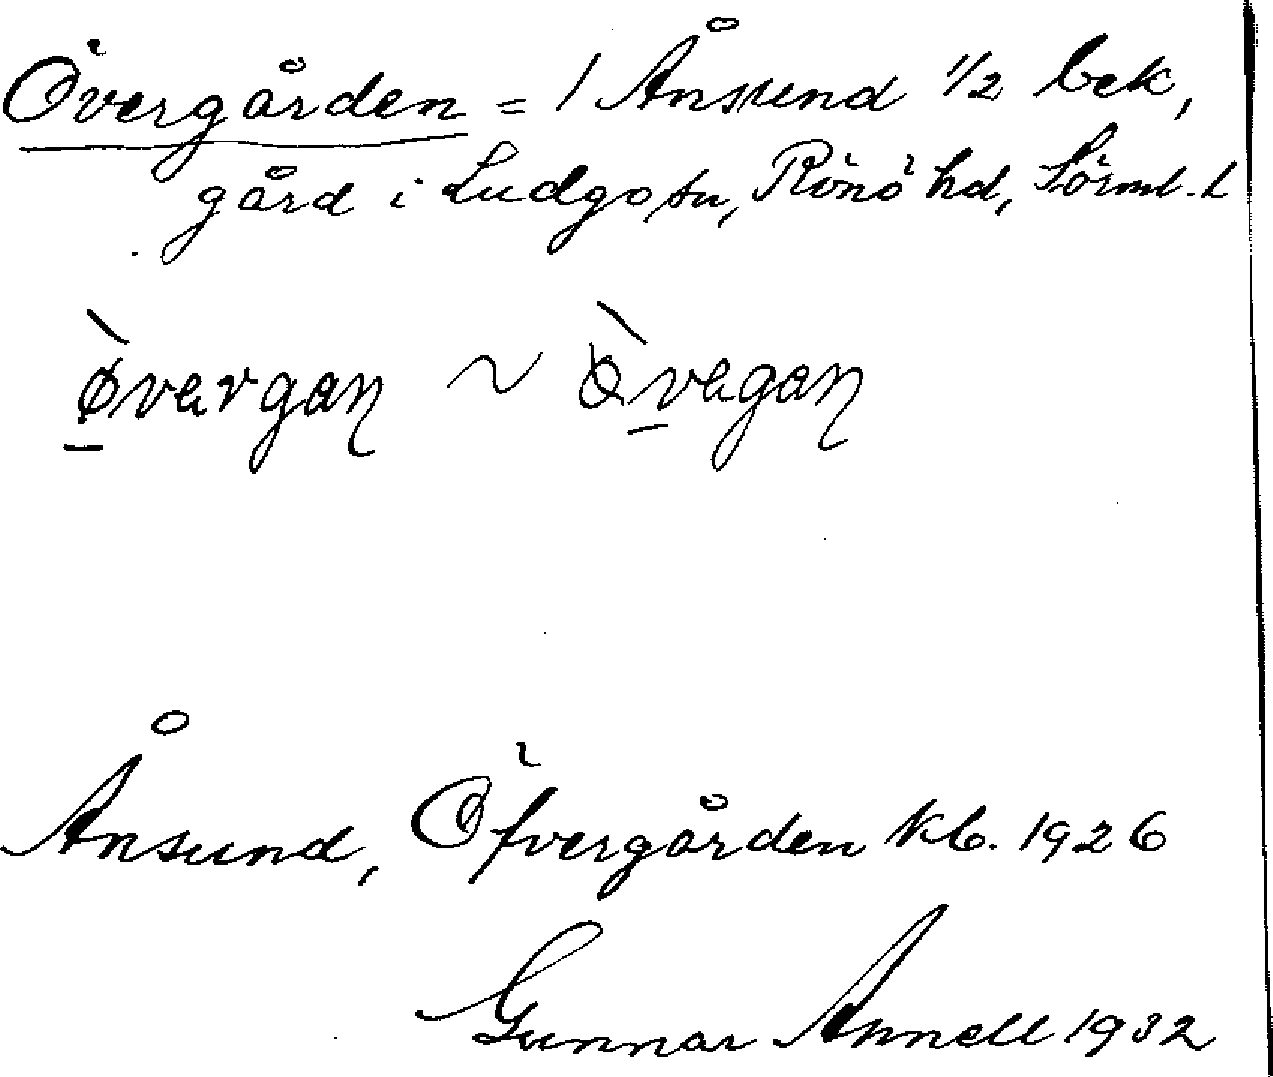 Övergården = 1 Ånsund 1/2 bek,
gård i Ludgo sn, Rönö hd, Sörml. l
Ånsund, Öfvergården kb. 1926
Gunnar Annell 1932